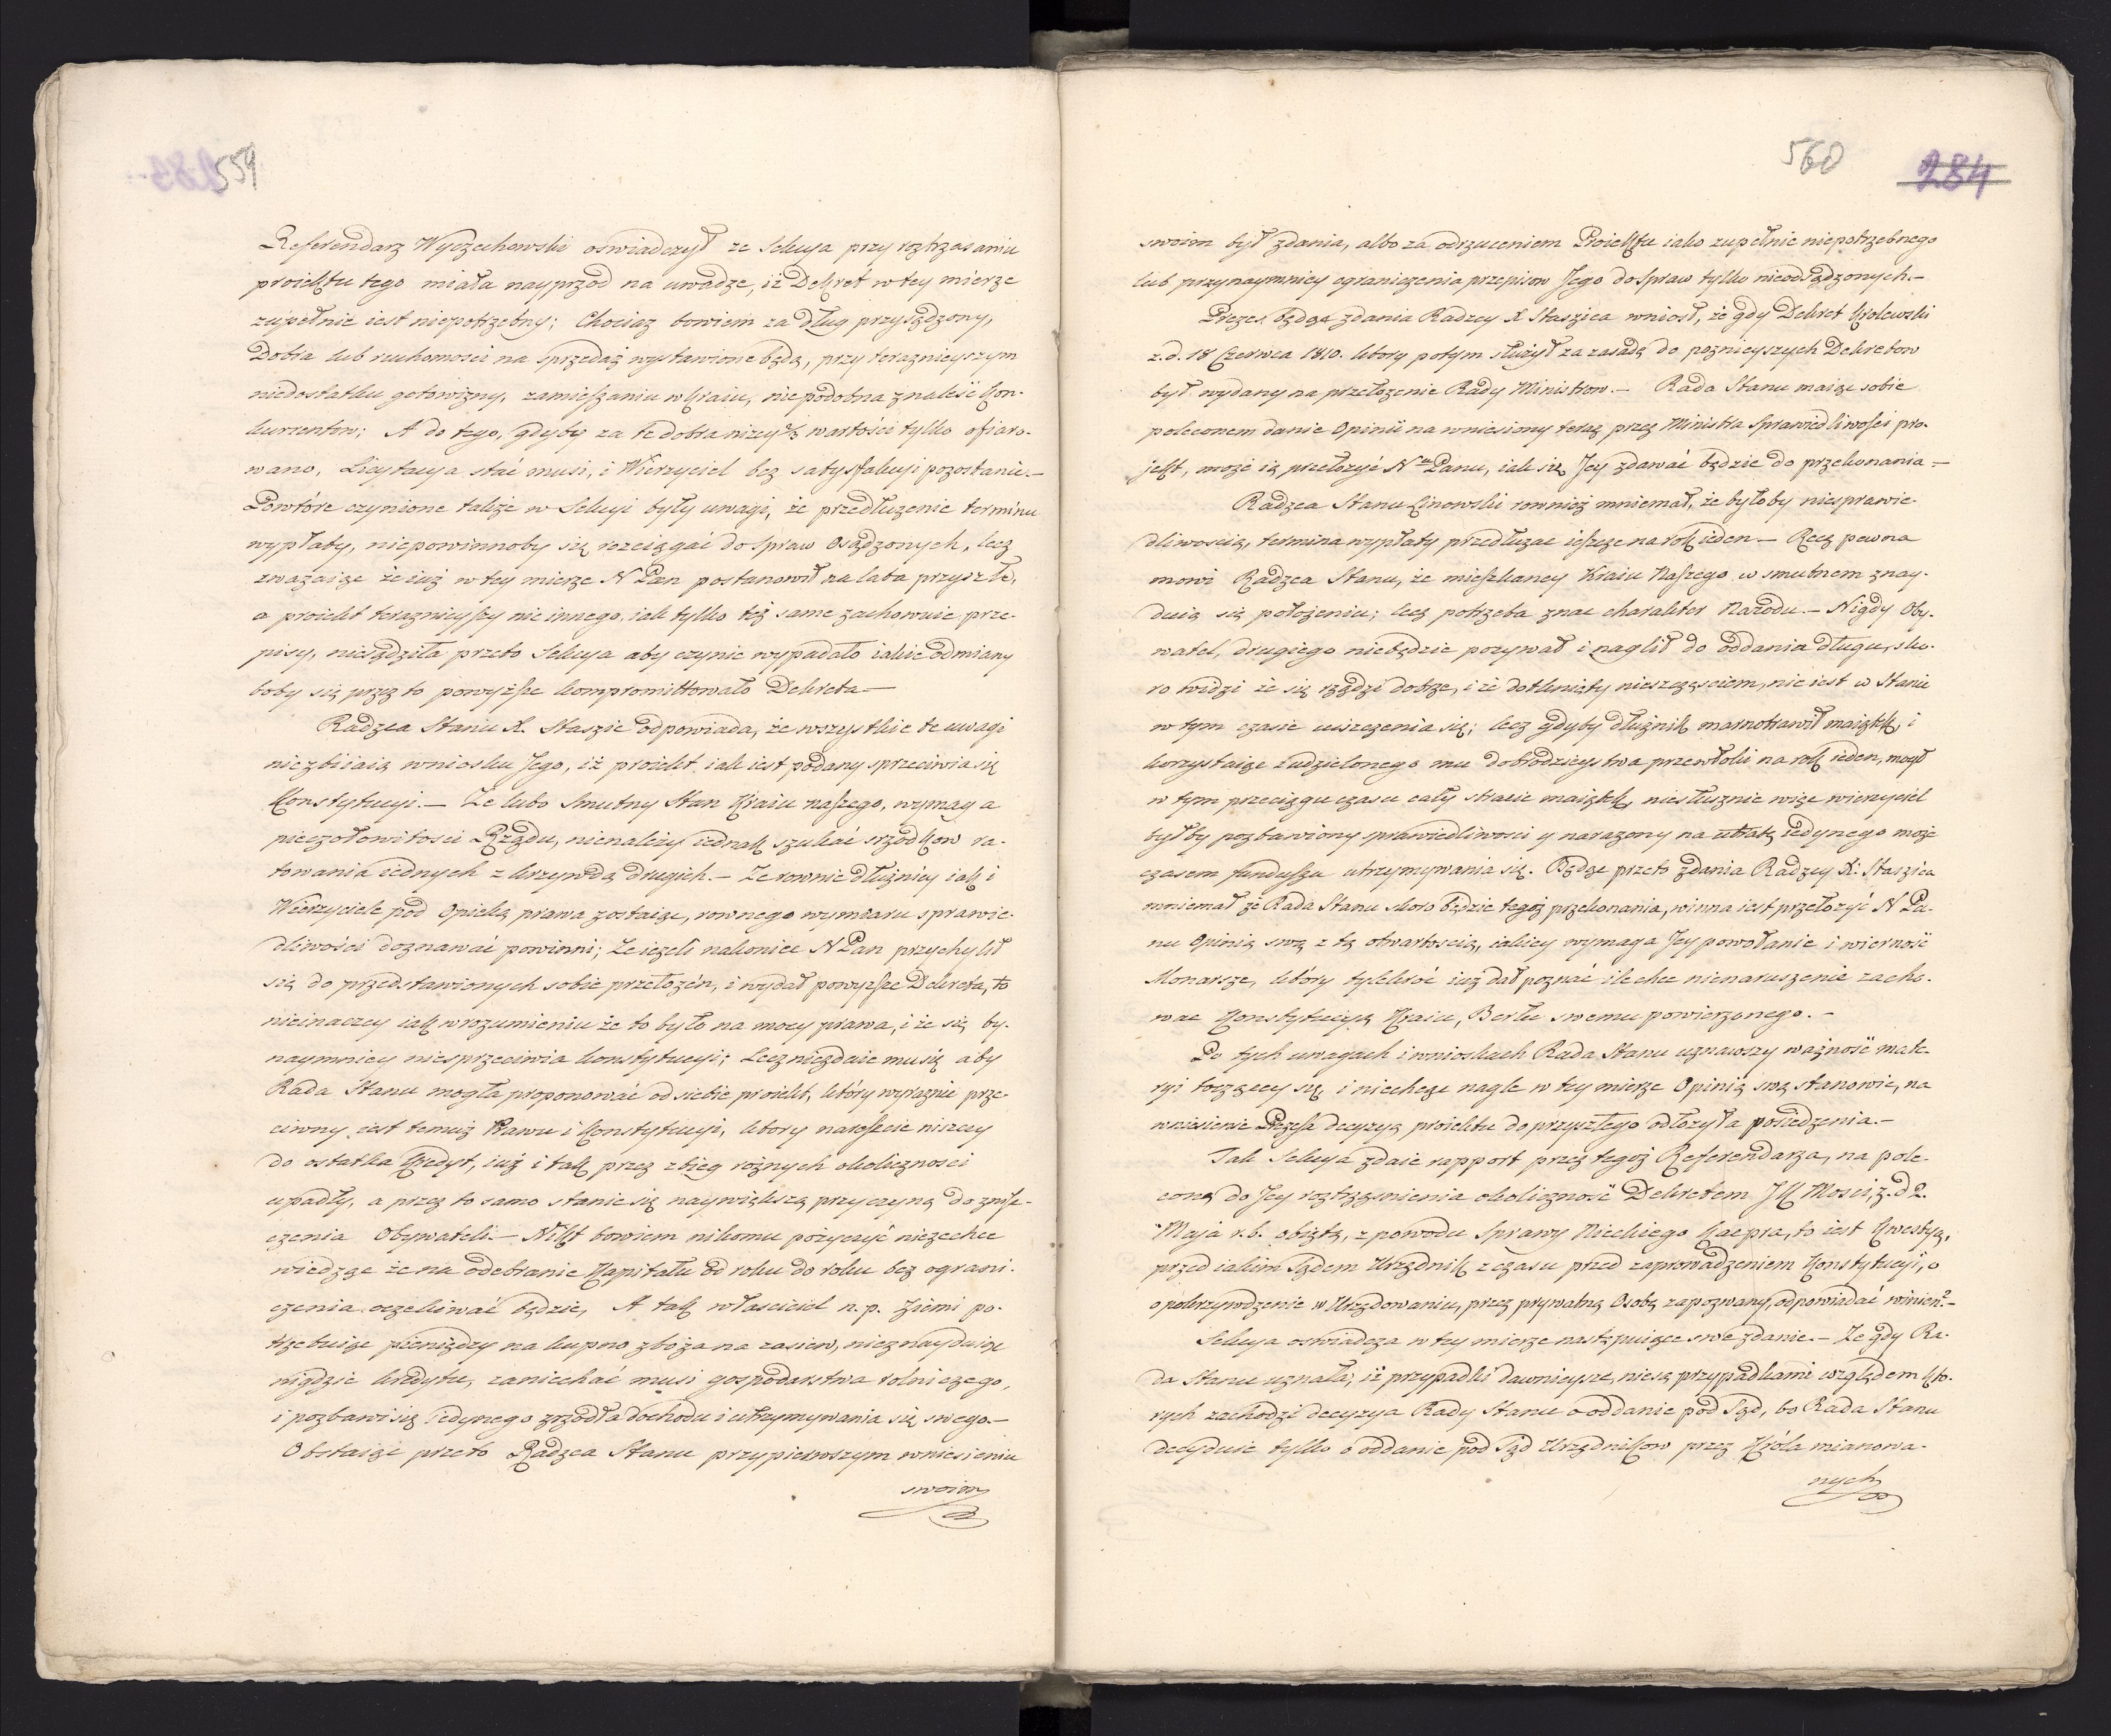 559
Referendarz Wyczechowski oswiadczył ze Sekcya przy roztrząsaniu
proiektu tego miała nayprzod na uwadze, iż Dekret w tey mierze
zupełnie iest niepotrzebny; Chociaz bowiem za dług przysądzony,
Dobra lub ruchomosci na sprzedaż wystawione będą, przy teraznieyszym
niedostatku gotowizny, zamieszaniu w kraiu, niepodobna znaleść kon-
kurzentow; A do tego, gdyby za te dobra niżey ⅔ wartości tylko ofiaro-
wano, Licytacya stać musi, i Wierzyciel bez satysfakcyi pozostanie.—
Powtóre czynione także w Sekcyi były uwagi, że przedłuzenie terminu
wypłaty, niepowinnoby się rozciągać do Spraw Osądzonych, lecz
zwazaiąc że iuż w tey mierze N Pan postanowił na lata przyszłe,
a proiekt teraznieyszy nic innego, iak tylko też same zachowuie prze-
pisy, niesądziła przeto Sekcya aby czynic wypadało iakie odmiany
boby się przez to powyższe kompromittowało Dekreta—
Radzca Stanu X. Staszic odpowiada, że wszystkie te uwagi
niezbiiaią wniosku Jego, iż proiekt iak iest podany sprzeciwia się
Konstytucyi.— Ze lubo Smutny Stan Kraiu naszego, wymaga
pieczołowitosci Rządu, nienależy iednak szukać srzodkow ra-
towania iednych z krzywdą drugich.— Ze rownie dłużnicy iak i
Wierzyciele pod Opieką prawa zostaiąc, rownego wymiaru sprawie-
dliwości doznawać powinni; Ze ieżeli nakoniec N Pan przychylił
się do przedstawionych sobie przełożeń, i wydał powyższe Dekreta, to
nieinaczey iak w rozumieniu że to było na mocy prawa, i że się by-
naymniey niesprzeciwia konstytucyi; Lecz niezdaie mu się aby
Rada Stanu mogła proponować od siebie proiekt, który wyraznie prze-
ciwny iest temuż Prawu i Konstytucyi, ktory nareszcie niszczy
do ostatka Kredyt, iuż i tak przez zbieg rożnych okoliczności
upadły, a przez to samo stanie się naywiększą przyczyną do znisz-
czenia Obywateli.— Nikt bowiem nikomu pożyczyć niezechce
wiedząc że na odebranie Kapitału od roku do roku bez ograni-
czenia oczekiwać będzie, A tak własciciel n.p. ziemi po-
trzebuiąc pieniędzy na kupno zboża na zasiew, nieznayduiąc
nigdzie kredytu, zaniechać musi gospodarstwa rolniczego,
i pozbawi się iedynego zrzodła dochodu i utrzymywania się swego.—
Obstaiąc przeto Radzca Stanu przy pierwszym wniesieniu
swoim
560
284
swoim był zdania, albo za odrzuceniem Proiektu iako zupełnie niepotrzebnego
lub przynaymniey ograniczenia przepisow Jego do Spraw tylko nieosądzonych.—
Prezes będąc zdania Radzcy X Staszica wniosł, że gdy Dekret Krolewski
z.d. 18 Czerwca 1810. ktory potym służył za zasadę do poznieyszych Dekretow
był wydany na przełozenie Rady Ministrow.— Rada Stanu maiąc sobie
poleconem danie Opinii na wniesiony teraz przez Ministra Sprawiedliwości pro-
jekt, może ią przełozyć N<sup>u</sup> Panu, iak się Jey zdawać będzie do przekonania—
Radzca Stanu Linowski rownież mniemał, że byłoby niesprawie-
dliwością, termina wypłaty przedłuzac ieszcze na rok ieden.— Rzecz pewna
mowi Radzca Stanu, że mieszkancy Kraiu Naszego w smutnem znay-
duią się położeniu; lecz potrzeba znac charakter Narodu.— Nigdy Oby-
watel, drugiego niebędzie pozywał i naglił do oddania długu, sko-
ro widzi że się rządzi dobrze, i że dotknięty nieszczęsciem, nie iest w Stanie
w tym czasie uiszczenia się; lecz gdyby dłużnik marnotrawił maiątek, i
korzystaiąc z udzielonego mu dobrodzieystwa przewłoki na rok ieden, mogł
w tym przeciągu czasu cały stracic maiątek, niesłusznie więc wierzyciel
byłby pozbawiony sprawiedliwosci y narazony na utratę iedynego może
czasem funduszu utrzymywania się. Będąc przeto zdania Radzcy X. Staszica
mniemał że Rada Stanu skoro będzie tegoż przekonania, winna iest przełożyć N Pa-
nu Opinią swą z tą otwartoscią, iakiey wymaga Jey powołanie i wierność
Monarsze, który tylekroć iuż dał poznać ile chce nienaruszenie zacho-
wac Konstytucyą Kraiu, Berłu swemu powierzonego.—
Po tych uwagach i wnioskach Rada Stanu uznawszy ważność mate-
ryi toczącey się, i niechcąc nagle w tey mierze Opinią swą stanowic, na
wniesienie Prezesa decyzyą proiektu do przyszłego odłożyła posiedzenia.—
Tak Sekcya zdaie rapport przez tegoż Referendarza, na pole-
coną do Jey roztrząsnienia okoliczność Dekretem JK Mosci, z.d 2.
Maja r.b. obiętą, z powodu Sprawy Nieckiego Kacpra, to iest Kwestyą,
przed iakim Sądem Urzędnik z czasu przed zaprowadzeniem Konstytucyi, o
pokrzywdzenie w Urzędowaniu, przez prywatną Osobę zapozwany, odpowiadać winien?—
Sekcya oswiadcza w tey mierze następuiące swe zdanie.— Ze gdy Ra-
da Stanu uznała, iż przypadki dawnieysze, niesą przypadkami względem kto-
rych zachodzi decyzya Rady Stanu o oddanie pod Sąd, bo Rada Stanu
decyduie tylko o oddanie pod Sąd Urzędnikow przez Króla mianowa-
nych